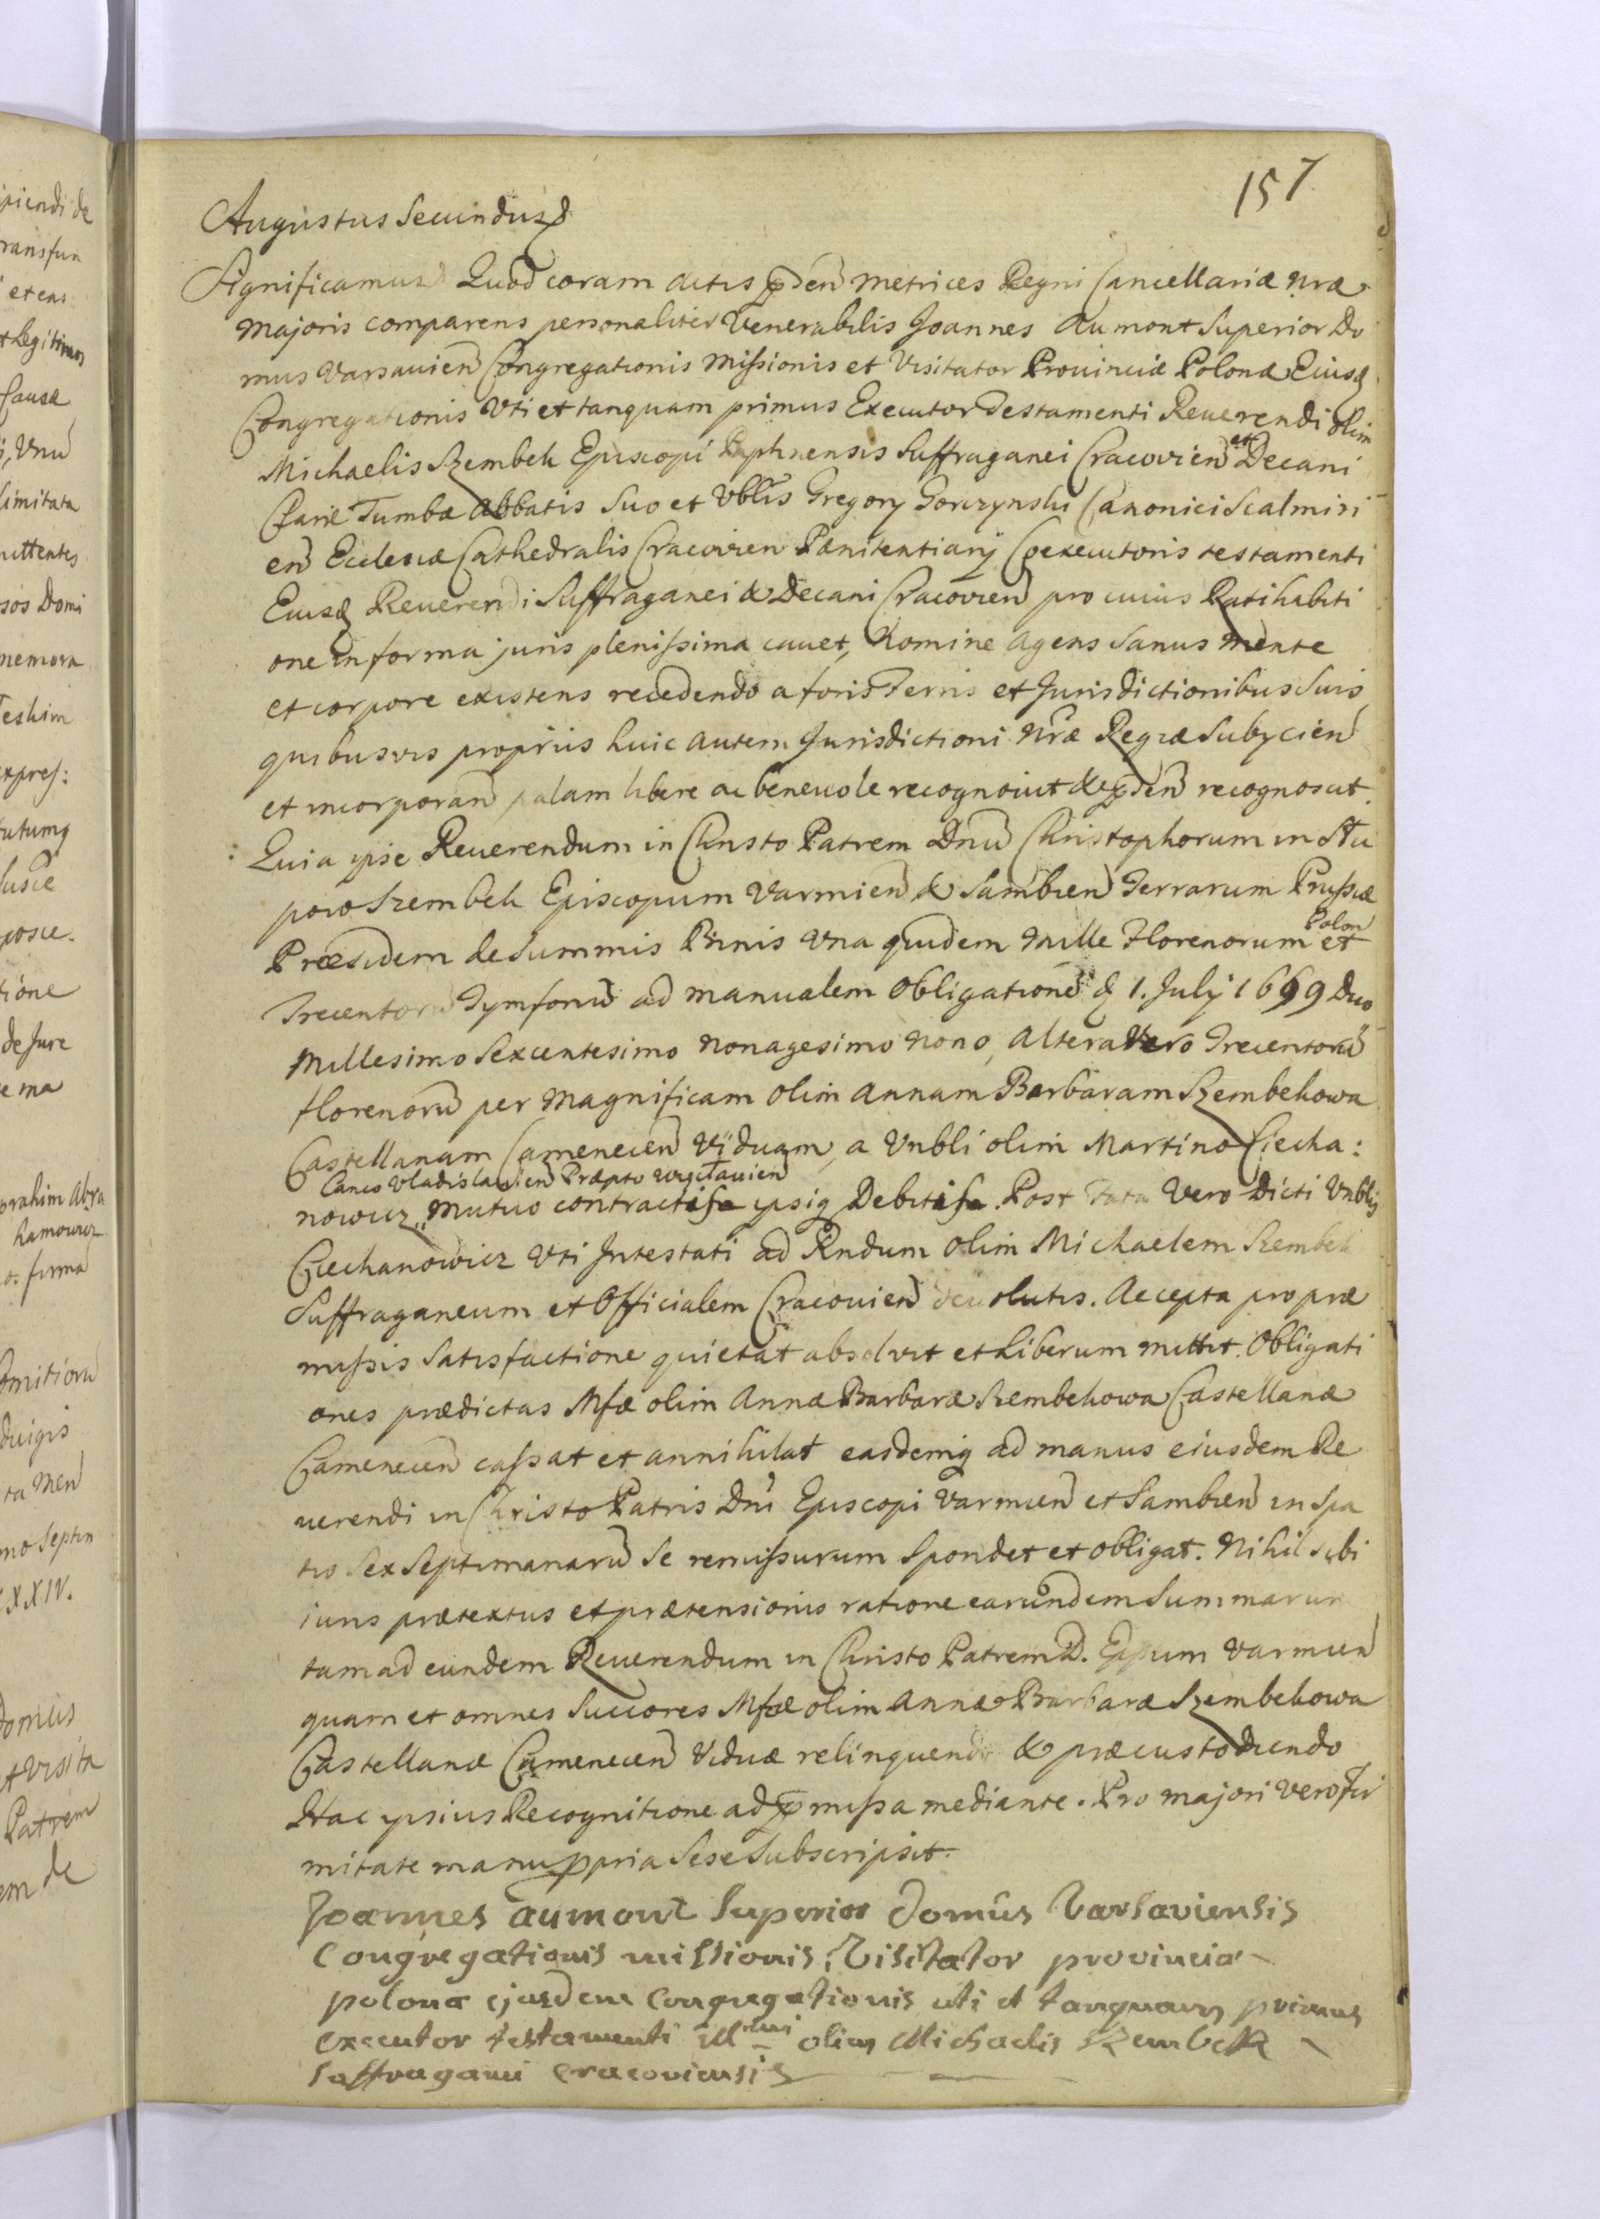 157
Augustus Secundus
Significamus Quod coram Actis pñden Metrices Regni Cancellariæ Nræ
Majoris comparens personaliter Venerabilis Joannes Aumont Superior Do
mus Varsavien Congregationis Missionis et Visitator Provinciæ Polonæ Eiusq
Congregationis Uti et tanquam primus Executor Testamenti Reverendi olim
Michaelis Szembek Episcopi Paphnensis Suffraganei Cracovien et Decani
Claræ Tumbæ Abbatis Suo et Vblis Gregorij Gorczynski Canonici Scalmiri
en Ecclesiæ Cathedralis Cracovien Pænitentiarij Coexecutoris testamenti
Eiusd Reverendi Suffraganei & Decani Cracovien pro cuius Ratihabiti
one in forma juris plenissima cavet, Nomine Agens Sanus Mente
et corpore existens recedendo a foris Terris et Jurisdictionibus Suis
quibusvis propriis huic autem Jurisdictioni Nræ Regiæ Subijcien
et incorporan palam libere ac benevole recognovit & pñden recognoscit
Quia ipse Reverendum in Christo Patrem Dnũ Christophorum in Stu
pow Szembek Episcopum Varmien & Sambien Terrarum Prussiæ
Præsidem de Summis Binis Una quidem Mille Florenorum Polon et
Trecentorũ Tymforũ ad manualem Obligationẽ d 1. July 1699 Duo
Millesimo Sexcentesimo Nonagesimo Nono, Altera Vero Trecentorũ
florenorũ per Magnificam olim Annam Barbaram Szembekowa
Castellanam Camenecen Viduam, a Vnbli olim Martino Ciecha:
Canco Vladislavien Præpto
nowicz, Mutuo contractis ipsiq Debitis. Post Fata Vero Dicti Vnblis
Ciechanowicz Uti Intestati ad Rndum olim Michaelem Szembek
Suffraganeum et Officialem Cracovien devolutis. Accepta pro præ
missis Satisfactione quietat absolvit et Liberum mittit. Obligati
ones prædictas Mfæ olim Annæ Barbaræ Szembekowa Castellanæ
Camenecen cassat et annihilat easdemq ad manus eiusdem Re
verendi in Christo Patris Dni Episcopi Varmien et Sambien in Spa
tio Sex Septimanarũ Se remissurum Spondet et obligat. Nihil sibi
iuris prætextus et prætensionis ratione earundem Summarum
tam ad eundem Reverendum in Christo Patrem D. Eppum Varmien
quam et omnes Succores Mfæ olim Annæ Barbaræ Szembekowa
Castellanæ Camenecen Viduæ relinquendo & præcustodiendo
Hac ipsius Recognitione ad pmissa mediante. Pro majori vero fir
mitate manu ppria Sese Subscripsit.
Joannes aumont Superior domûs Varsaviensis
Congregationis missionis, Visitator provinciæ
polonæ ejusdem Congregationis uti et tanquam primus
executor testamenti Illmi olim Michaelis Szembek
Suffraganei Cracoviensis